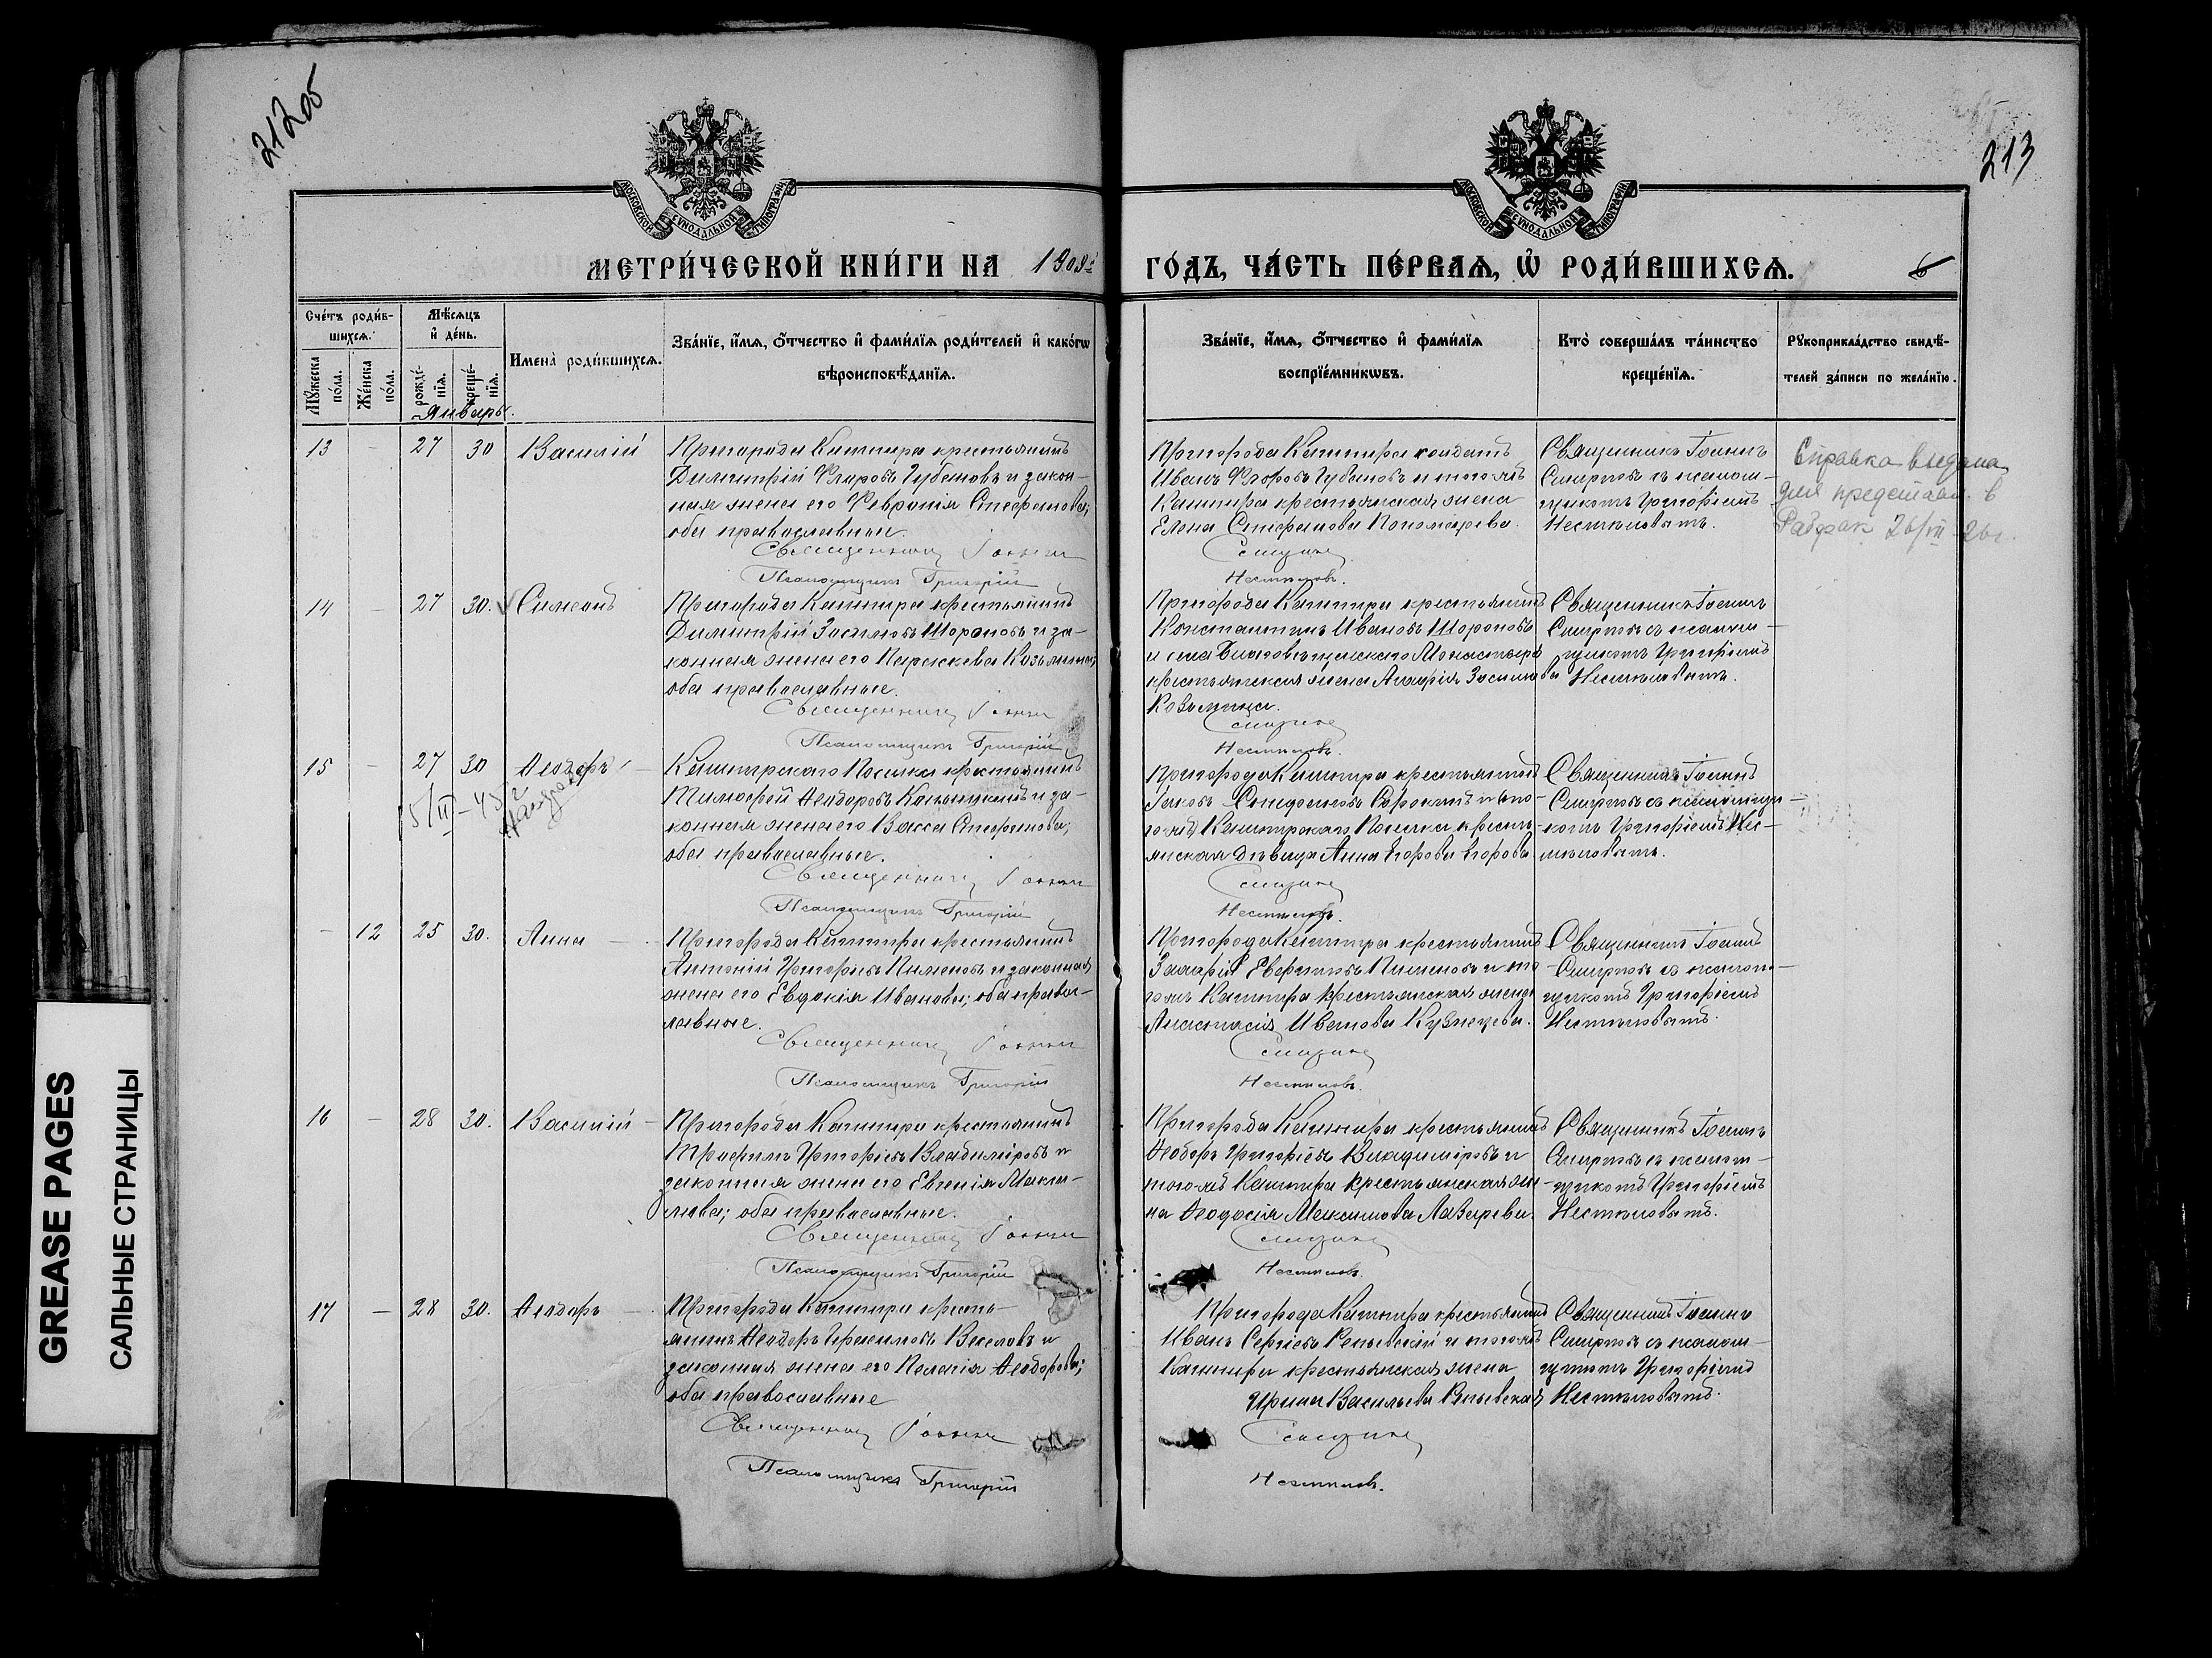 212об
213
МЕТРИ́ЧЕСКОЙ КНИ́ГИ НА 1908й ГО́ДЪ, ЧА́СТЬ ПЕ́РВАЯ, Ѡ РОДИ́ВШИХСЯ.
6
Сче́тъ роди́в-
шихся.
Му́жеска по́ла.
Же́нска по́ла.
Мѣ́сяцъ
и де́нь.
рожде́-
нїя.
креще́-
нїя.
Имена̀ роди́вшихся.
Зва́нїе, и́мя, о́тчество и фами́лїя роди́телей и како́гѡ
вѣроисповѣ́данїя.
Зва́нїе, и́мя, о́тчество и фами́лїя
воспрїе́мникѡвъ.
Кто̀ соверша́лъ та́инство
креще́нїя.
Рꙋкоприкла́дство свидѣ́-
телей за́писи по жела́нїю.
Январь.
13 – 27 30 Василій
Пригорода Кашпира крестьянинъ
Димитрій Фларовъ Губановъ и закон-
ная жена его Февронія Стефанова;
оба православные.
Священникъ Іоаннъ
Псаломщикъ Григорій
Пригорода Кашпира солдатъ
Иванъ Флоровъ Губановъ и того-жъ
Кашпира крестьянская жена
Елена Стефанова Пономарева.
Смирновъ
Священникъ Іоаннъ
Смирновъ съ псалом-
щикомъ Григоріемъ
Справка выдана
для представл. в
Рабфак 26/VII 26г.
14 – 27 30. Симеонъ
Пригорода Кашпира крестьянинъ
Димитрій Зосимовъ Шороновъ и за-
конная жена его Параскева Козьмина;
оба православные.
Священникъ Іоаннъ
Псаломщикъ Григорій
Пригорода Кашпира крестьянинъ
Константинъ Ивановъ Шороновъ
и села Благовѣщенскаго Монастыря
крестьянская жена Марія Зосимова
Козьмина.
Смирновъ
Священникъ Іоаннъ
Смирновъ съ псалом-
щикомъ Григоріемъ
15 – 27 30 Ѳеодоръ
15/II – 43г
Кашпирскаго Поселка крестьянинъ
Тимофей Ѳеодоровъ и за-
конная жена его Васса Стефанова;
оба православные.
Священникъ Іоаннъ
Псаломщикъ Григорій
Пригорода Кашпира крестьянинъ
Іаковъ Сорокинъ и то-
го-жъ Кашпирскаго Поселка кресть-
янская дѣвица Анна Егорова Егорова
Смирновъ
Священникъ Іоаннъ
Смирновъ съ псаломщи-
комъ Григоріемъ
– 12 25 30. Анна
Пригорода Кашпира крестьянинъ
Антоній Григорьевъ Пименовъ и законная
жена его Евдокія Иванова; оба правос-
лавные.
Священникъ Іоаннъ
Псаломщикъ Григорій
Пригорода Кашпира крестьянинъ
Захарій Пименовъ и то-
го-жъ Кашпира крестьянская жена
Анастасія Иванова Кузнецова.
Смирновъ
Священникъ Іоаннъ
Смирновъ съ псалом-
щикомъ Григоріемъ
16 – 28 30. Василій
Пригорода Кашпира крестьянинъ
Трофимъ Григорьевъ Владиміровъ и
законная жена его Евгенія Макси-
мова; оба православные.
Священникъ Іоаннъ
Псаломщикъ Григорій
Пригорода Кашпира крестьянинъ
Ѳеодоръ Григорьевъ Владиміровъ и
того-жъ Кашпира крестьянская же-
на Ѳеодосія Максимова Лазарева.
Смирновъ
Священникъ Іоаннъ
Смирновъ съ псалом-
щикомъ Григоріемъ
17 – 28 30. Ѳеодоръ
Пригорода Кашпира кресть-
янинъ Ѳеодоръ Герасимовъ Веселовъ и
законная жена его Пелагія Ѳеодорова;
оба православные
Священникъ Іоаннъ
Псаломщикъ Григорій
Пригорода Кашпира крестьянинъ
Иванъ Сергіевъ Репьевскій и того-жъ
Кашпира крестьянская жена
Ирина Васильева Репьевская
Смирновъ
Священникъ Іоаннъ
Смирновъ съ псалом-
щикомъ Григоріемъ
GREASE PAGES
САЛЬНЫЕ СТРАНИЦЫ